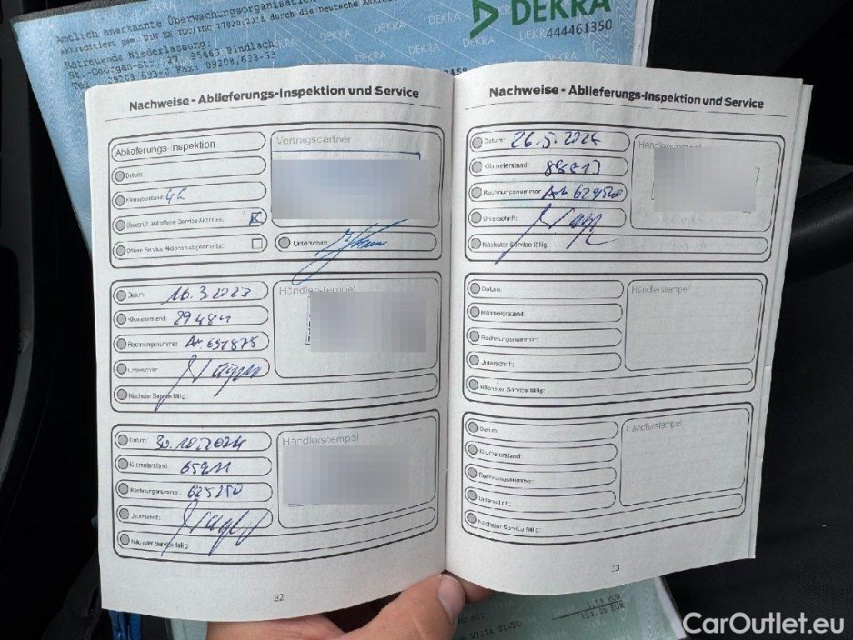 Amtlich anerkannte Überwachungsorganisation
DEKRA
DEKRA
444461350
Betreuende Niederlassung:
St.-Georgen-Str. 27, 95463 Bindlach
Nachweise - Ablieferungs-Inspektion und Service
Ablieferungs-Inspektion
Vertragspartner
Datum:
Kilometerstand:
Überprüft auf offene Service Aktionen:
Offene Service Aktionen abgearbeitet:
Unterschrift:
Datum: 16.3.2023
Händlerstempel
Kilometerstand: 29484
Rechnungsnummer:
Unterschrift:
Nächster Service fällig:
Datum: 30.10.2024
Händlerstempel
Kilometerstand: 65911
Rechnungsnummer: 625250
Unterschrift:
Nächster Service fällig:
32
Nachweise - Ablieferungs-Inspektion und Service
Datum: 26.5.2026
Händlerstempel
Kilometerstand: 88813
Rechnungsnummer:
Unterschrift:
Nächster Service fällig:
Datum:
Händlerstempel
Kilometerstand:
Rechnungsnummer:
Unterschrift:
Nächster Service fällig:
Datum:
Händlerstempel
Kilometerstand:
Rechnungsnummer:
Unterschrift:
Nächster Service fällig:
33
CarOutlet.eu